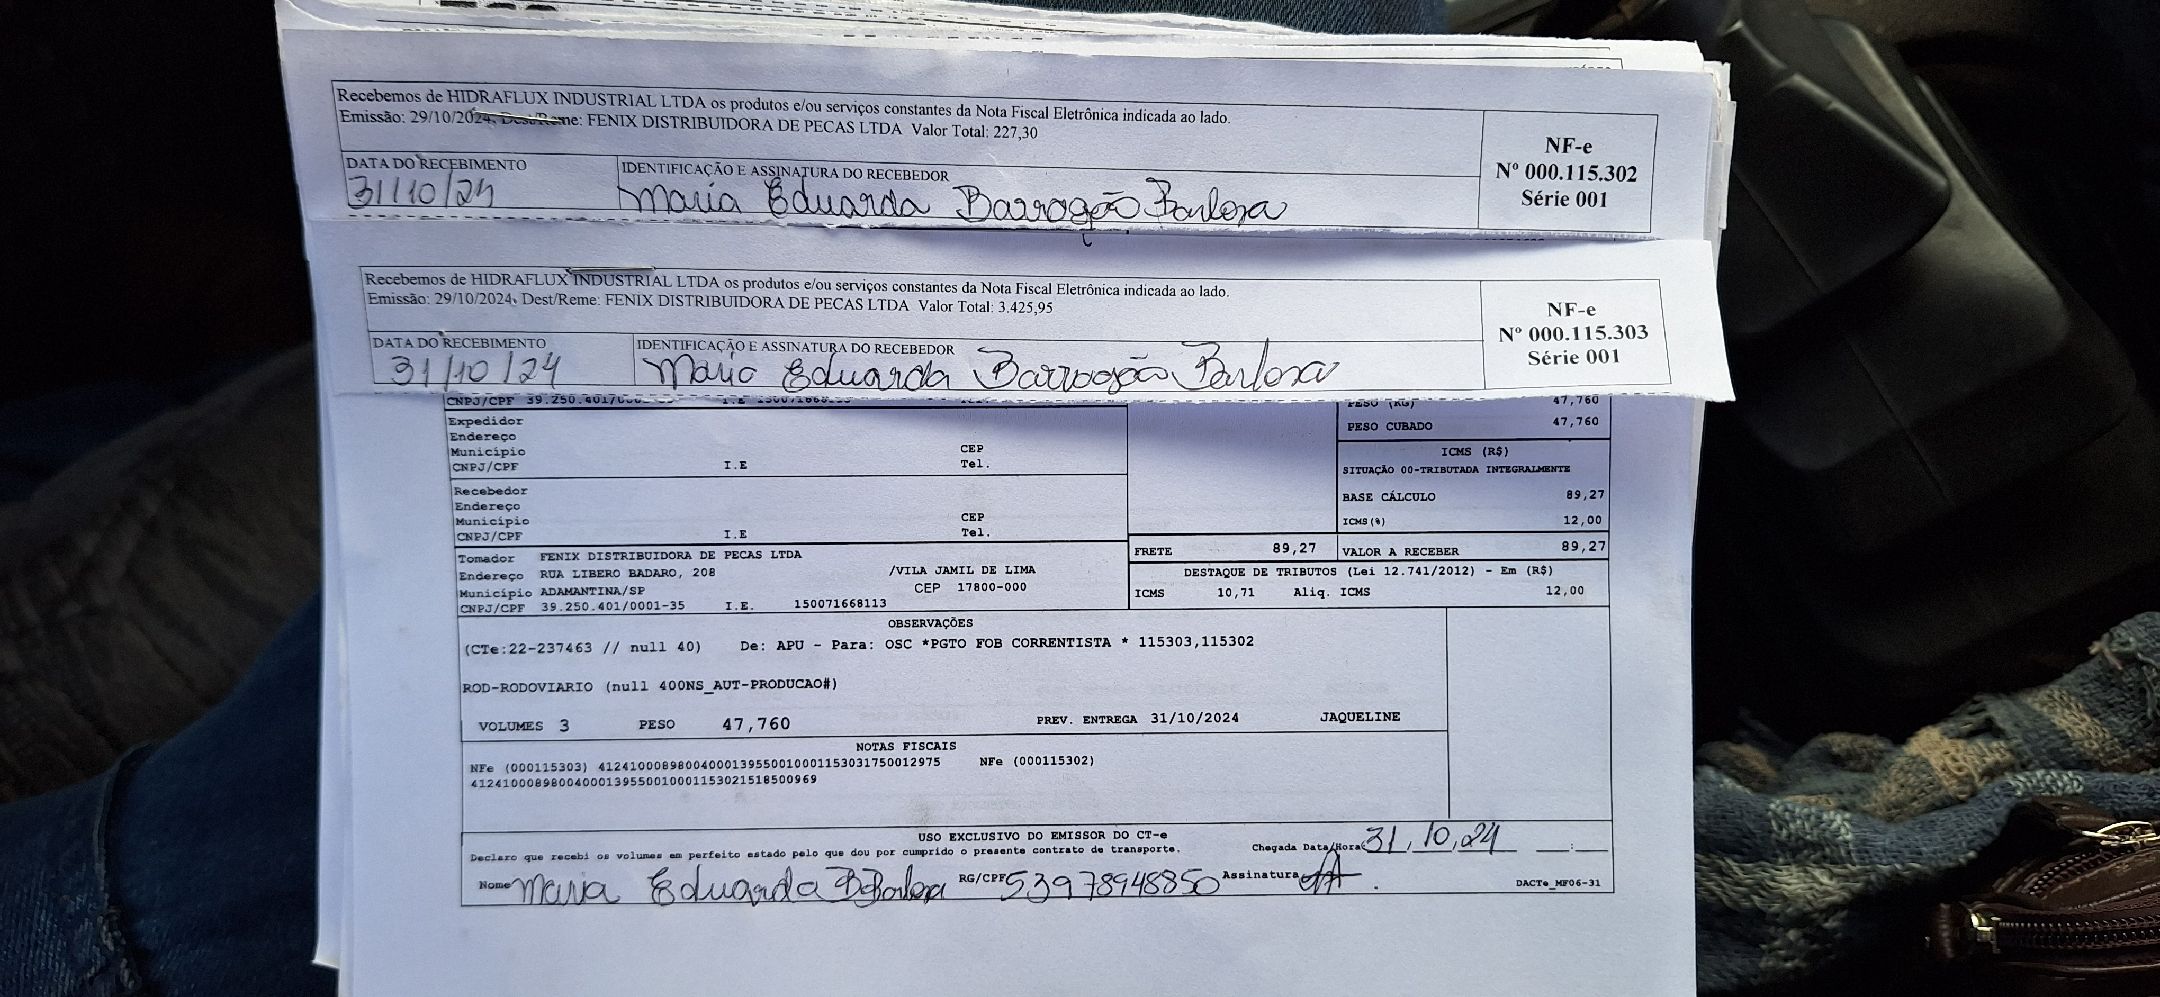 Recebemos de HIDRAFLUX INDUSTRIAL LTDA os produtos e/ou serviços constantes da Nota Fiscal Eletrônica indicada ao lado.
Emissão: 29/10/2024, Dest/Reme: FENIX DISTRIBUIDORA DE PECAS LTDA Valor Total: 227,30
NF-e
Nº 000.115.302
Série 001
DATA DO RECEBIMENTO
31/10/24
IDENTIFICAÇÃO E ASSINATURA DO RECEBEDOR
Maria Eduarda Barrogão Barbosa
Recebemos de HIDRAFLUX INDUSTRIAL LTDA os produtos e/ou serviços constantes da Nota Fiscal Eletrônica indicada ao lado.
Emissão: 29/10/2024, Dest/Reme: FENIX DISTRIBUIDORA DE PECAS LTDA Valor Total: 3.425,95
NF-e
Nº 000.115.303
Série 001
DATA DO RECEBIMENTO
31/10/24
IDENTIFICAÇÃO E ASSINATURA DO RECEBEDOR
Maria Eduarda Barrogão Barbosa
CNPJ/CPF 39.250.401/ I.E
PESO (KG) 47,760
PESO CUBADO 47,760
Expedidor
Endereço
Município CEP
CNPJ/CPF I.E Tel.
ICMS (R$)
SITUAÇÃO 00-TRIBUTADA INTEGRALMENTE
BASE CÁLCULO 89,27
ICMS(%) 12,00
Recebedor
Endereço
Município CEP
CNPJ/CPF I.E Tel.
FRETE 89,27 VALOR A RECEBER 89,27
Tomador FENIX DISTRIBUIDORA DE PECAS LTDA
Endereço RUA LIBERO BADARO, 208 /VILA JAMIL DE LIMA
Município ADAMANTINA/SP CEP 17800-000
CNPJ/CPF 39.250.401/0001-35 I.E. 150071668113
DESTAQUE DE TRIBUTOS (Lei 12.741/2012) - Em (R$)
ICMS 10,71 Aliq. ICMS 12,00
OBSERVAÇÕES
(CTe:22-237463 // null 40) De: APU - Para: OSC *PGTO FOB CORRENTISTA * 115303,115302
ROD-RODOVIARIO (null 400NS_AUT-PRODUCAO#)
VOLUMES 3 PESO 47,760 PREV. ENTREGA 31/10/2024 JAQUELINE
NOTAS FISCAIS
NFe (000115303) 41241000898004000139550010001153031750012975 NFe (000115302)
41241000898004000139550010001153021518500969
USO EXCLUSIVO DO EMISSOR DO CT-e
Declaro que recebi os volumes em perfeito estado pelo que dou por cumprido o presente contrato de transporte. Chegada Data/Hora: 31,10,24 __:__
Nome Maria Eduarda B Barbosa RG/CPF 53978948850 Assinatura
DACTe_MF06-31